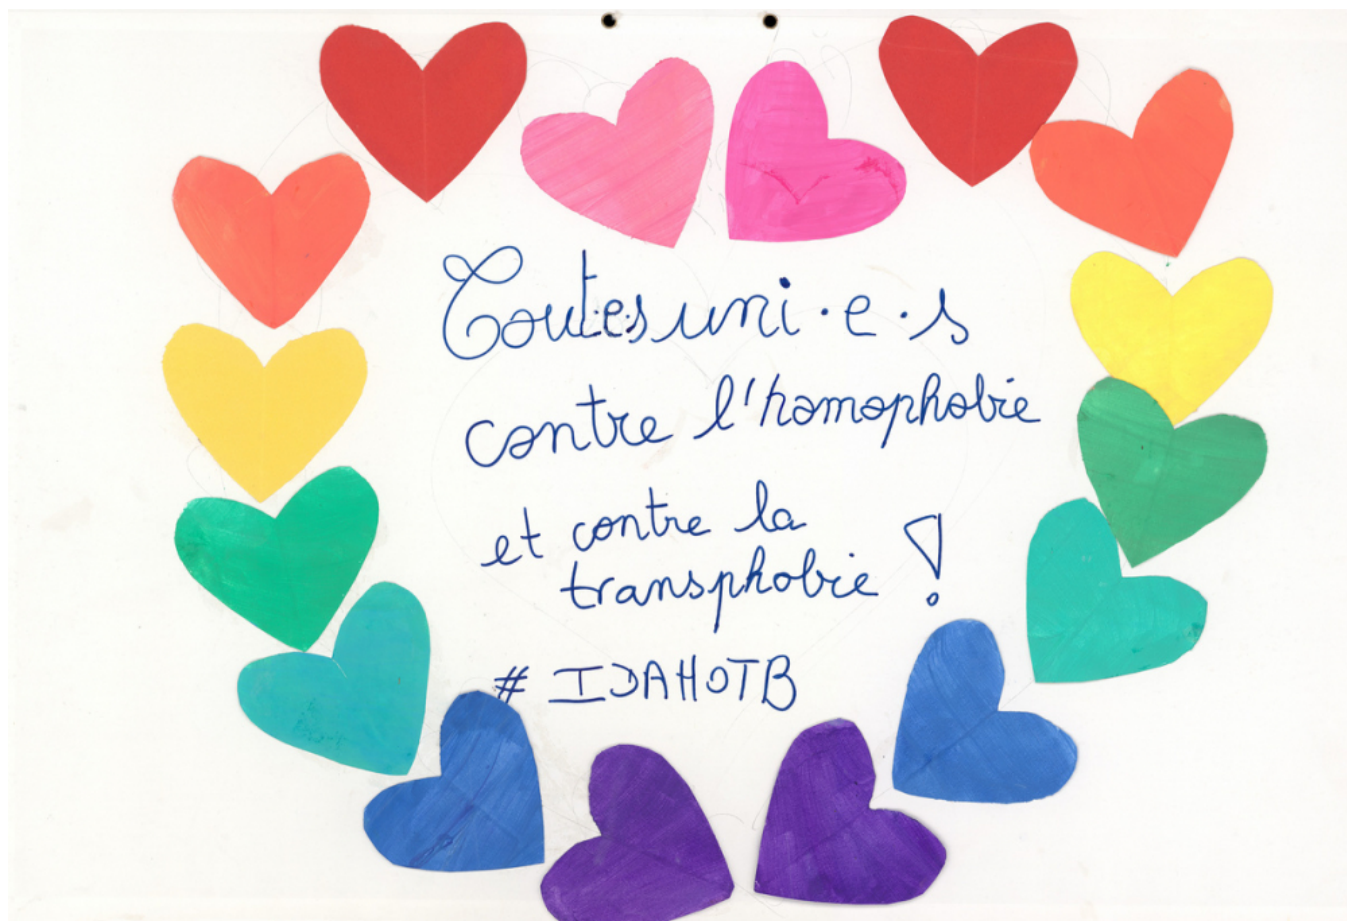 Toutes uni·e·s
contre l'homophobie
et contre la
transphobie !
# IDAHOTB